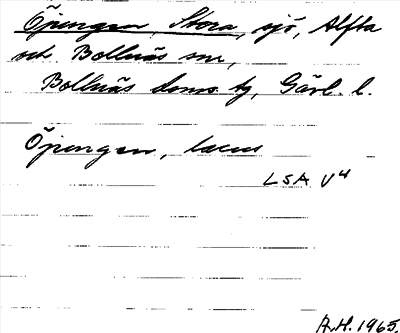 Öjungen, Stora, sjö, Alfta
och Bollnäs snr,
Bollnäs doms. tg, Gävl. l.
Öjungen, lacus
LSA V⁴
A.H. 1965.